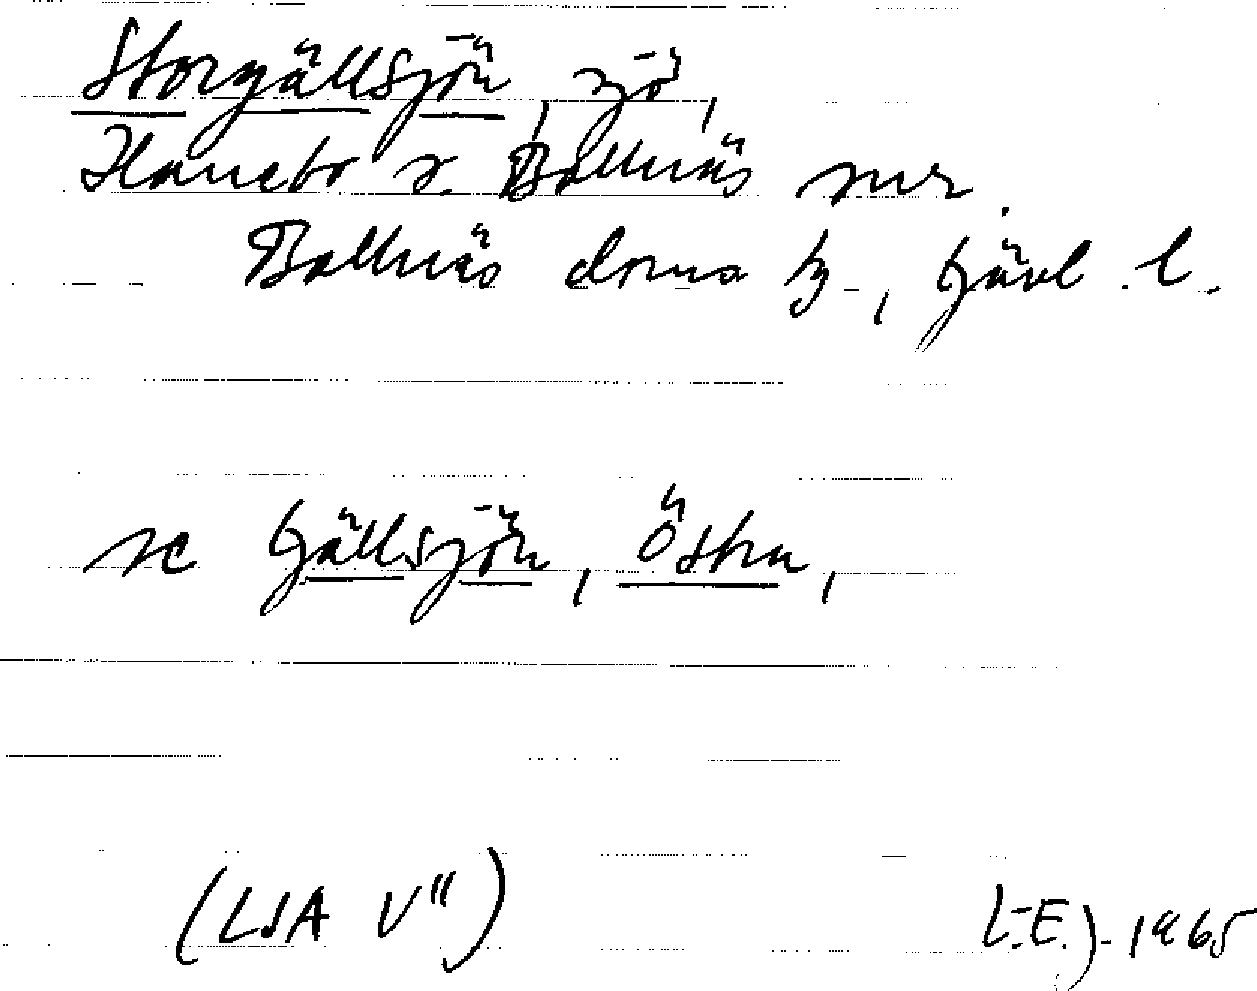 Storgällsjön, sjö,
Hanebo o. Bollnäs snr.
Bollnäs doms h., Gävl. l.
se Gällsjön, Östra,
(LSA V") L.E.). 1965